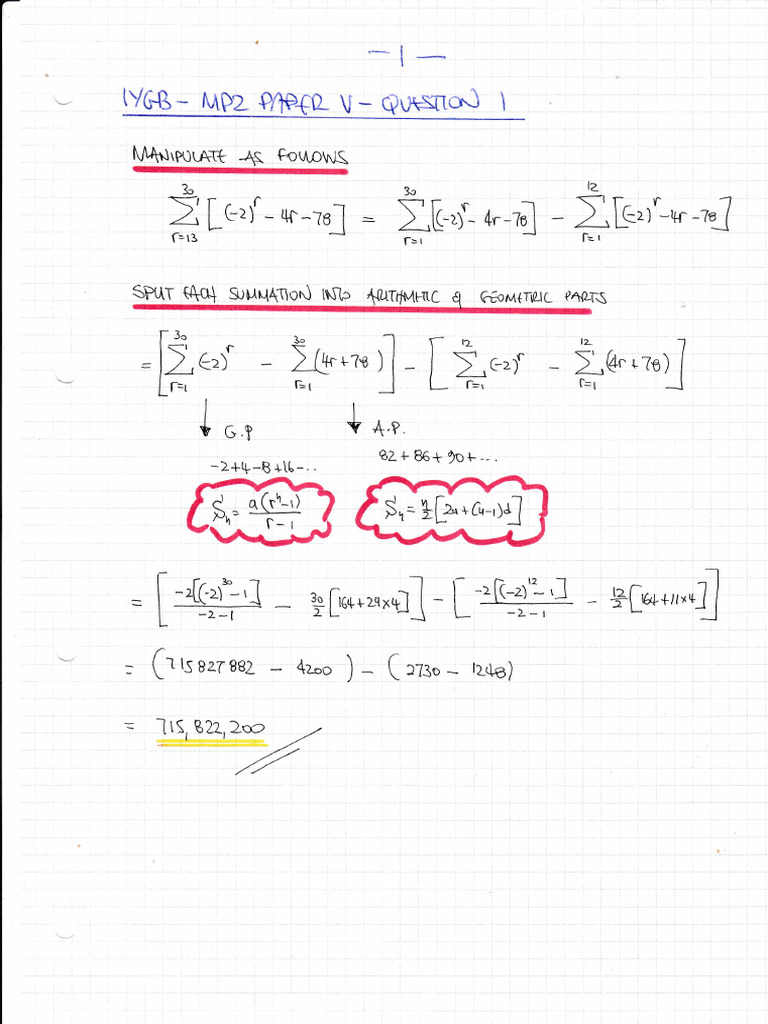 -1-
IYGB - MP2 PAPER V - QUESTION 1
MANIPULATE AS FOLLOWS
∑_{r=13}^{30} [(-2)^r - 4r - 78] = ∑_{r=1}^{30} [(-2)^r - 4r - 78] - ∑_{r=1}^{12} [(-2)^r - 4r - 78]
SPLIT EACH SUMMATION INTO ARITHMETIC & GEOMETRIC PARTS
= [∑_{r=1}^{30} (-2)^r - ∑_{r=1}^{30} (4r + 78)] - [∑_{r=1}^{12} (-2)^r - ∑_{r=1}^{12} (4r + 78)]
↓ G.P ↓ A.P.
-2+4-8+16-... 82 + 86 + 90 + ...
S_n = a(r^n - 1)/(r - 1) S_n = n/2 [2a + (n-1)d]
= [-2[(-2)^30 - 1]/(-2-1) - 30/2 [164 + 29×4]] - [-2[(-2)^12 - 1]/(-2-1) - 12/2 [164 + 11×4]]
= (715827882 - 4200) - (2730 - 1248)
= 715,822,200